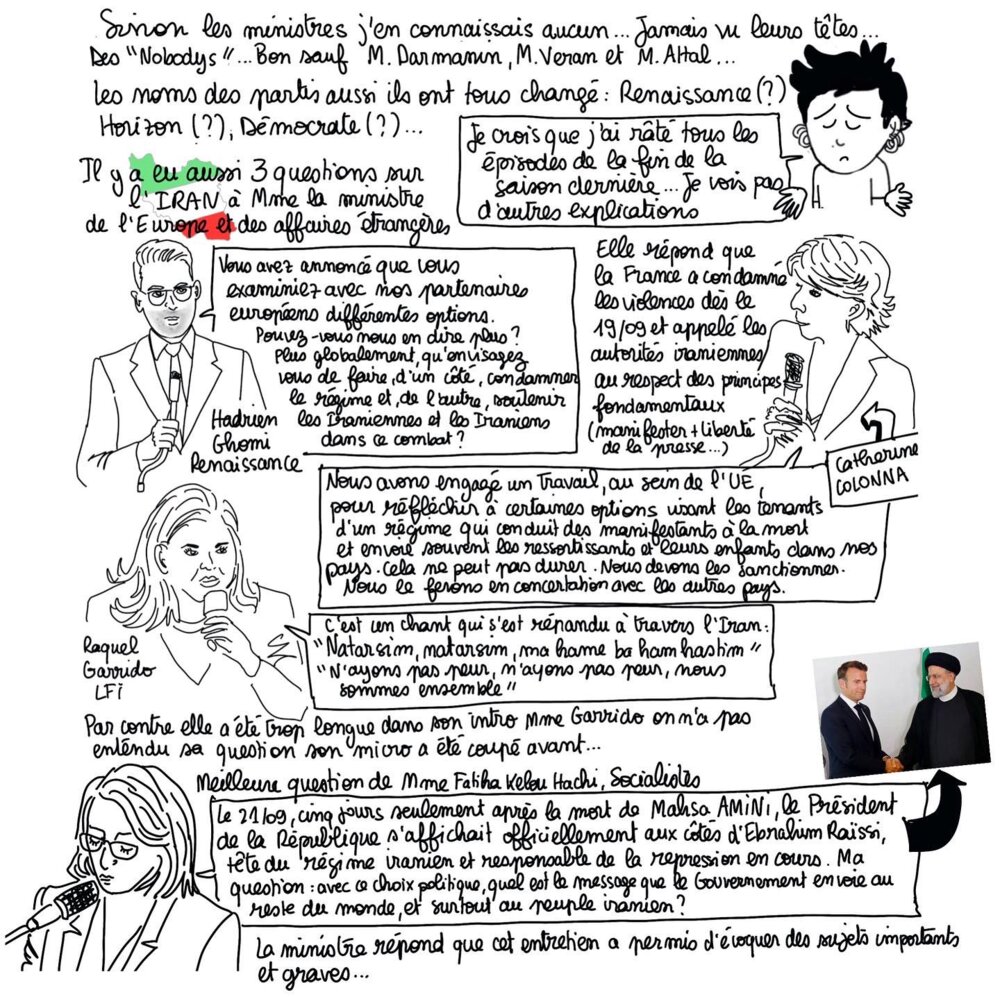 Sinon les ministres j'en connaissais aucun... Jamais vu leurs têtes...
Des "Nobodys"... Bon sauf M. Darmanin, M. Veran et M. Attal...
Les noms des partis aussi ils ont tous changé : Renaissance (?)
Horizon (?), Démocrate (?)...
Je crois que j'ai râté tous les
épisodes de la fin de la
saison dernière... Je vois pas
d'autres explications
Il y a eu aussi 3 questions sur
l'IRAN à Mme la ministre
de l'Europe et des affaires étrangères
Vous avez annoncé que vous
examiniez avec nos partenaires
européens différentes options.
Pouvez-vous nous en dire plus ?
Plus globalement, qu'envisagez
vous de faire, d'un côté, condamner
le régime et, de l'autre, soutenir
les Iraniennes et les Iraniens
dans ce combat ?
Hadrien
Ghomi
Renaissance
Elle répond que
la France a condamné
les violences dès le
19/09 et appelé les
autorités iraniennes
au respect des principes
fondamentaux
(manifester + liberté
de la presse...)
Catherine
COLONNA
Nous avons engagé un travail, au sein de l'UE,
pour réfléchir à certaines options visant les tenants
d'un régime qui conduit des manifestants à la mort
et envoie souvent les ressortissants et leurs enfants dans nos
pays. Cela ne peut pas durer. Nous devons les sanctionner.
Nous le ferons en concertation avec les autres pays.
Raquel
Garrido
LFi
C'est un chant qui s'est répandu à travers l'Iran :
"Natarsim, natarsim, ma hame ba ham hastim"
"N'ayons pas peur, n'ayons pas peur, nous
sommes ensemble"
Par contre elle a été trop longue dans son intro Mme Garrido on n'a pas
entendu sa question son micro a été coupé avant...
Meilleure question de Mme Fatiha Kelou Hachi, Socialistes
Le 21/09, cinq jours seulement après la mort de Mahsa AMINI, le Président
de la République s'affichait officiellement aux côtés d'Ebrahim Raïssi,
tête du régime iranien et responsable de la repression en cours. Ma
question : avec ce choix politique, quel est le message que le Gouvernement envoie au
reste du monde, et surtout au peuple iranien ?
La ministre répond que cet entretien a permis d'évoquer des sujets importants
et graves...